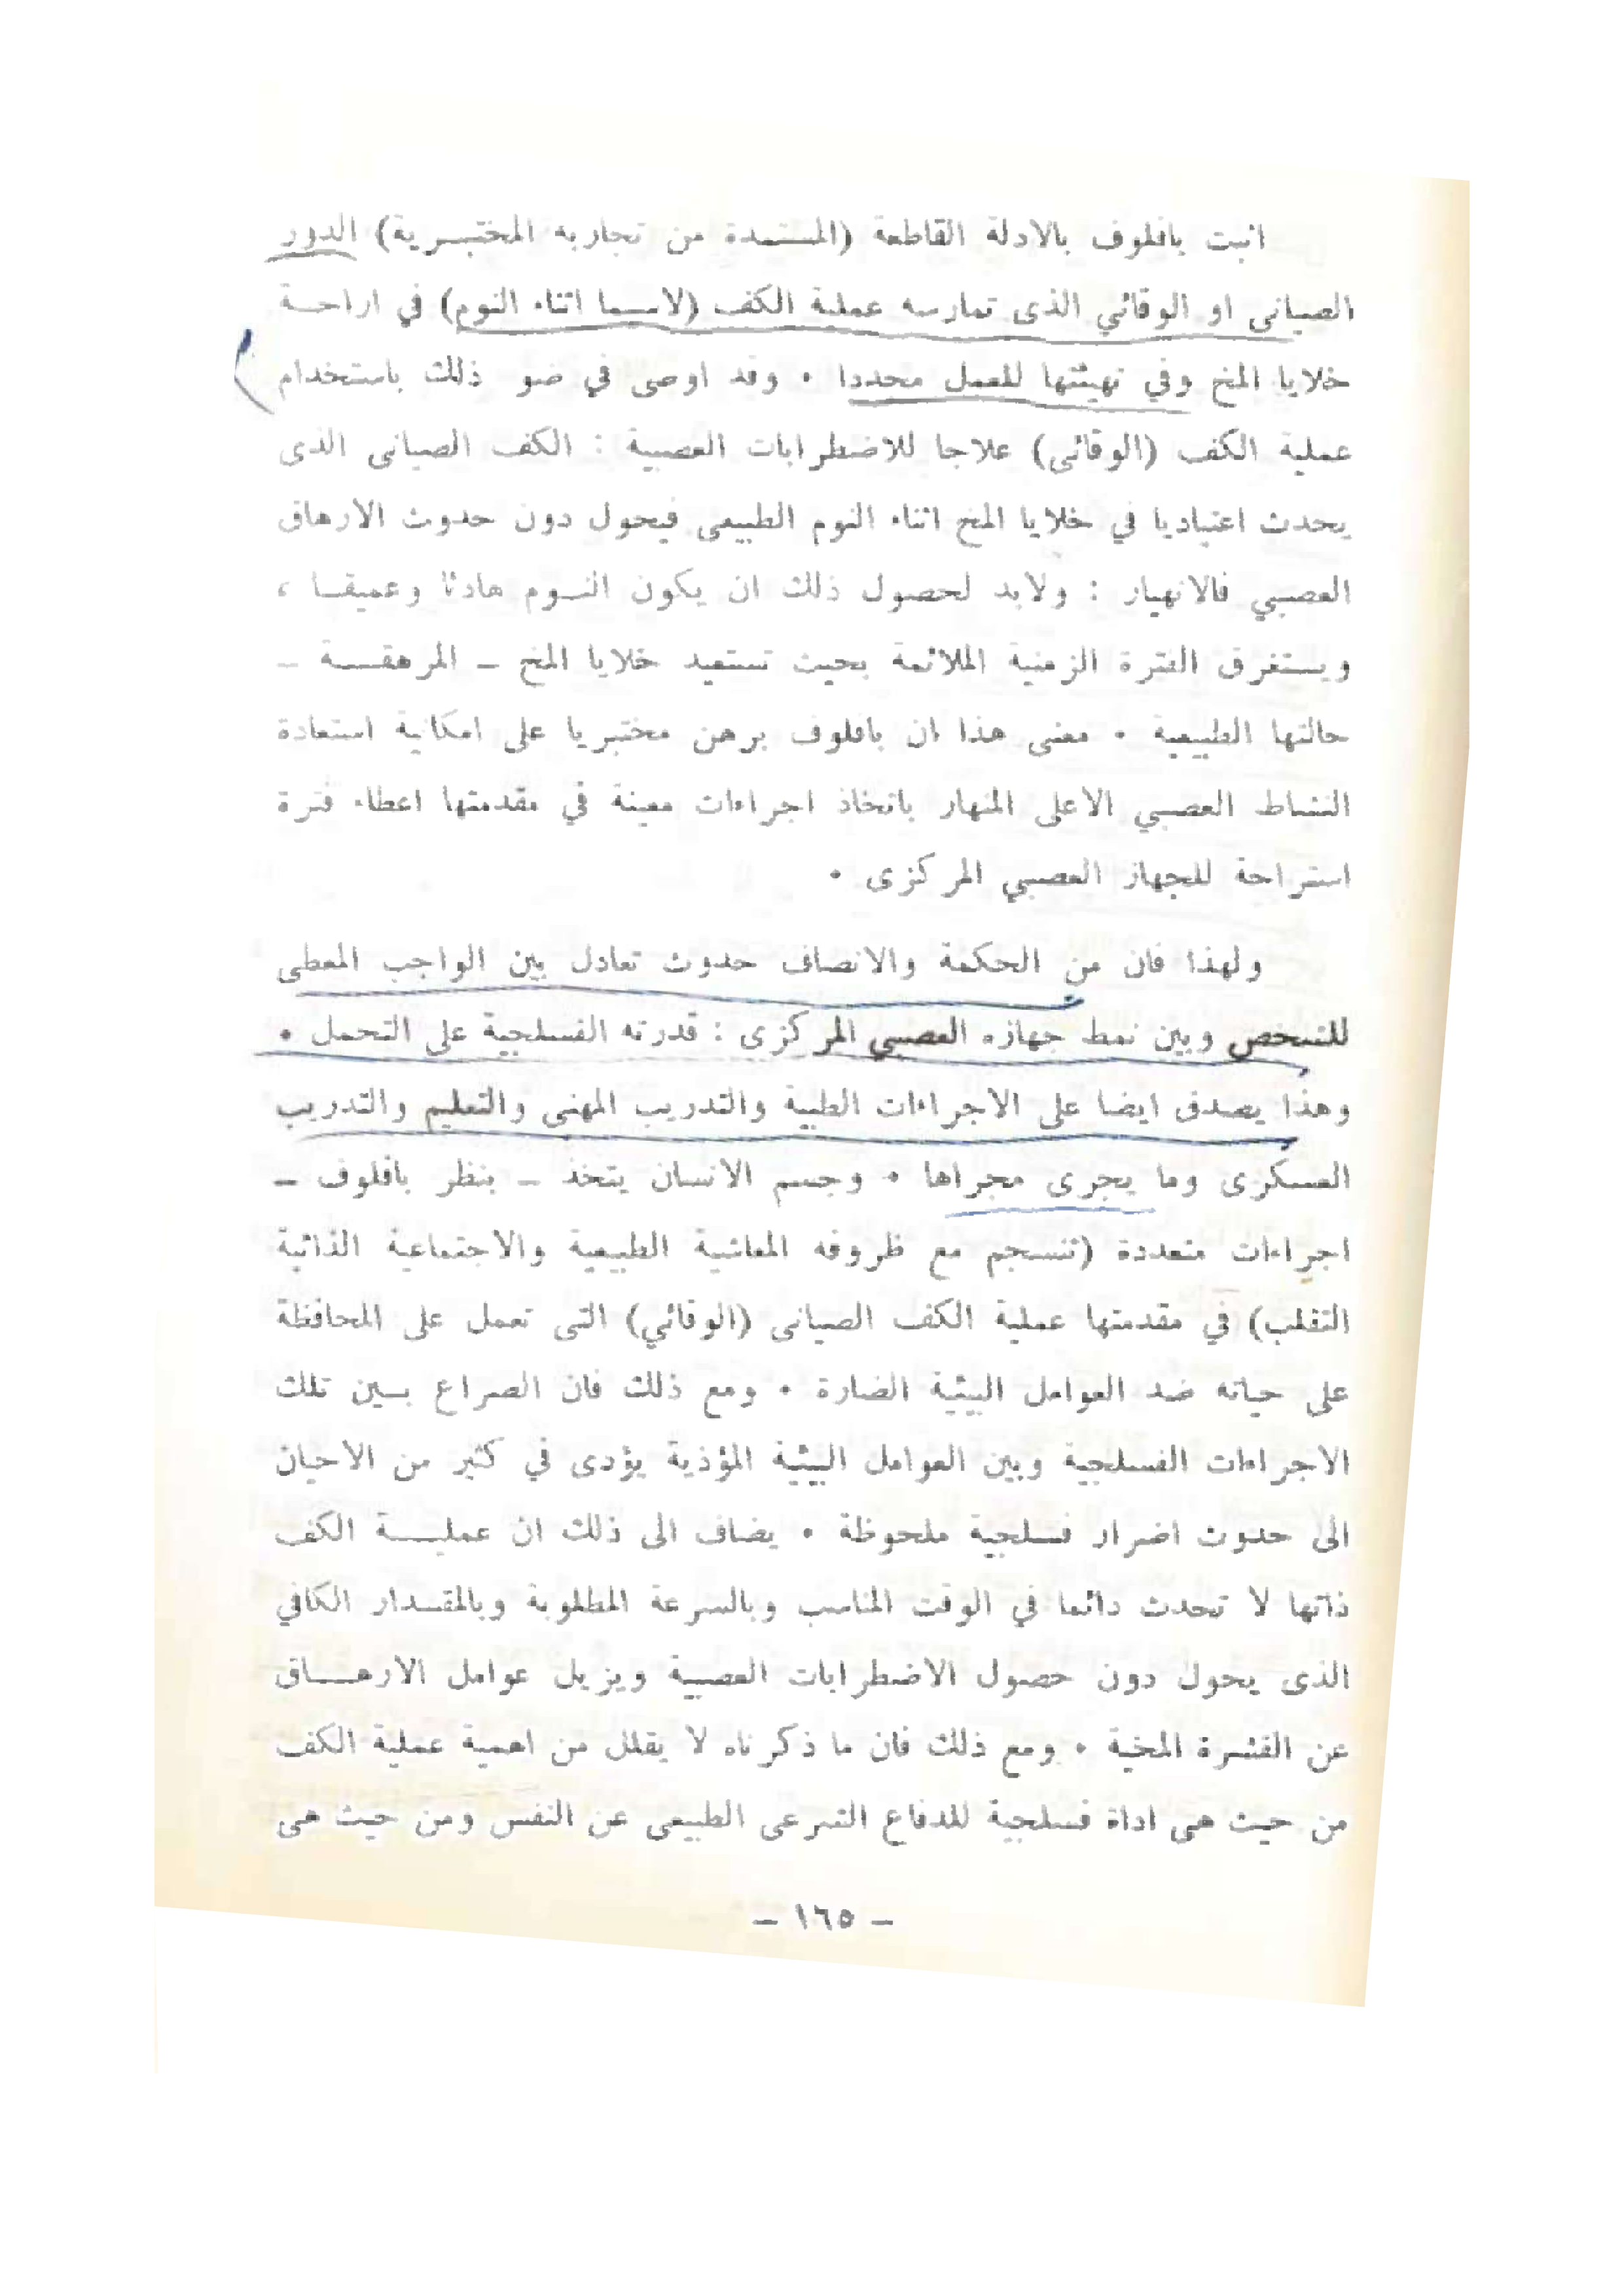 اثبت بافلوف بالادلة القاطعة (المستمدة من تجاربه المختبرية) الدور
الصياني او الوقائي الذى تمارسه عملية الكف (لاسيما اثناء النوم) في اراحة
خلايا المخ وفي تهيئتها للعمل مجددا ٠ وقد اوصى في ضو ذلك باستخدام
عملية الكف (الوقائى) علاجا للاضطرابات العصبية : الكف الصيانى الذى
يحدث اعتياديا في خلايا المخ اثناء النوم الطبيعى فيحول دون حدوث الارهاق
العصبي فالانهيار : ولابد لحصول ذلك ان يكون النوم هادئا وعميقا ،
ويستغرق الفترة الزمنية الملائمة بحيث تستعيد خلايا المخ ـ المرهقة ـ
حالتها الطبيعية ٠ معنى هذا ان بافلوف برهن مختبريا على امكانية استعادة
النشاط العصبي الاعلى المنهار باتخاذ اجراءات معينة في مقدمتها اعطاء فترة
استراحة للجهاز العصبي المركزى ٠
ولهذا فان من الحكمة والانصاف حدوث تعادل بين الواجب المعطى
للشخص وبين نمط جهازه العصبي المركزى : قدرته الفسلجية على التحمل ٠
وهذا يصدق ايضا على الاجراءات الطبية والتدريب المهنى والتعليم والتدريب
العسكرى وما يجرى مجراها ٠ وجسم الانسان يتخذ ـ بنظر بافلوف ـ
اجراءات متعددة (تنسجم مع ظروفه المعاشية الطبيعية والاجتماعية الدائبة
التقلب) في مقدمتها عملية الكف الصيانى (الوقائي) التى تعمل على المحافظة
على حياته ضد العوامل البيئية الضارة ٠ ومع ذلك فان الصراع بين تلك
الاجراءات الفسلجية وبين العوامل البيئية المؤذية يؤدى في كثير من الاحيان
الى حدوث اضرار فسلجية ملحوظة ٠ يضاف الى ذلك ان عملية الكف
ذاتها لا تحدث دائما في الوقت المناسب وبالسرعة المطلوبة وبالمقدار الكافي
الذى يحول دون حصول الاضطرابات العصبية ويزيل عوامل الارهاق
عن القشرة المخية ٠ ومع ذلك فان ما ذكرناه لا يقلل من اهمية عملية الكف
من حيث هى اداة فسلجية للدفاع الشرعى الطبيعى عن النفس ومن حيث هى
ـ ١٦٥ ـ